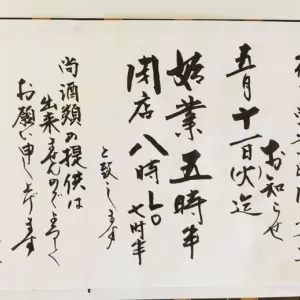 お知らせ
五月十一日(火)迄
始業五時半
閉店八時
七時半
と致します
尚酒類の提供は
出来ませんのでよろしく
お願い申し上げます